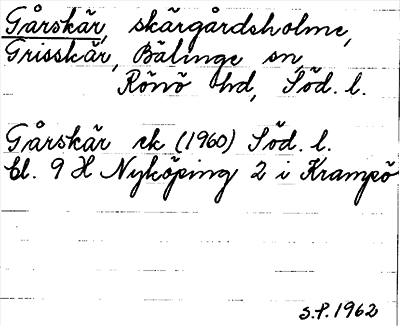 Gårskär, skärgårdsholme,
Grisskär, Bälinge sn,
Rönö hd, Söd. l.
Gårskär ek (1960) Söd. l.
bl. 9 H Nyköping 2 i Krampö
S.P. 1962